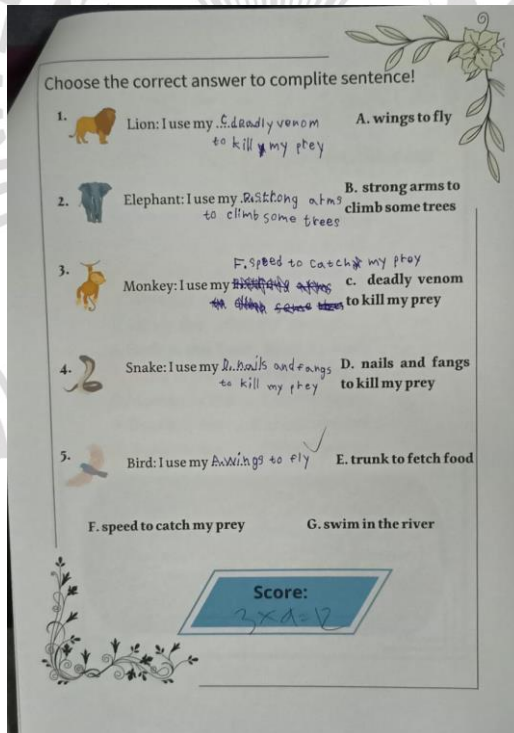 Choose the correct answer to complite sentence!
1. Lion: I use my ..C.deadly venom
to kill my prey
A. wings to fly
2. Elephant: I use my .B.strong arms
to climb some trees
B. strong arms to
climb some trees
F. speed to catch my prey
3. Monkey: I use my
c. deadly venom
to kill my prey
4. Snake: I use my D. nails and fangs
to kill my prey
D. nails and fangs
to kill my prey
5. Bird: I use my A.wings to fly
E. trunk to fetch food
F. speed to catch my prey
G. swim in the river
Score: